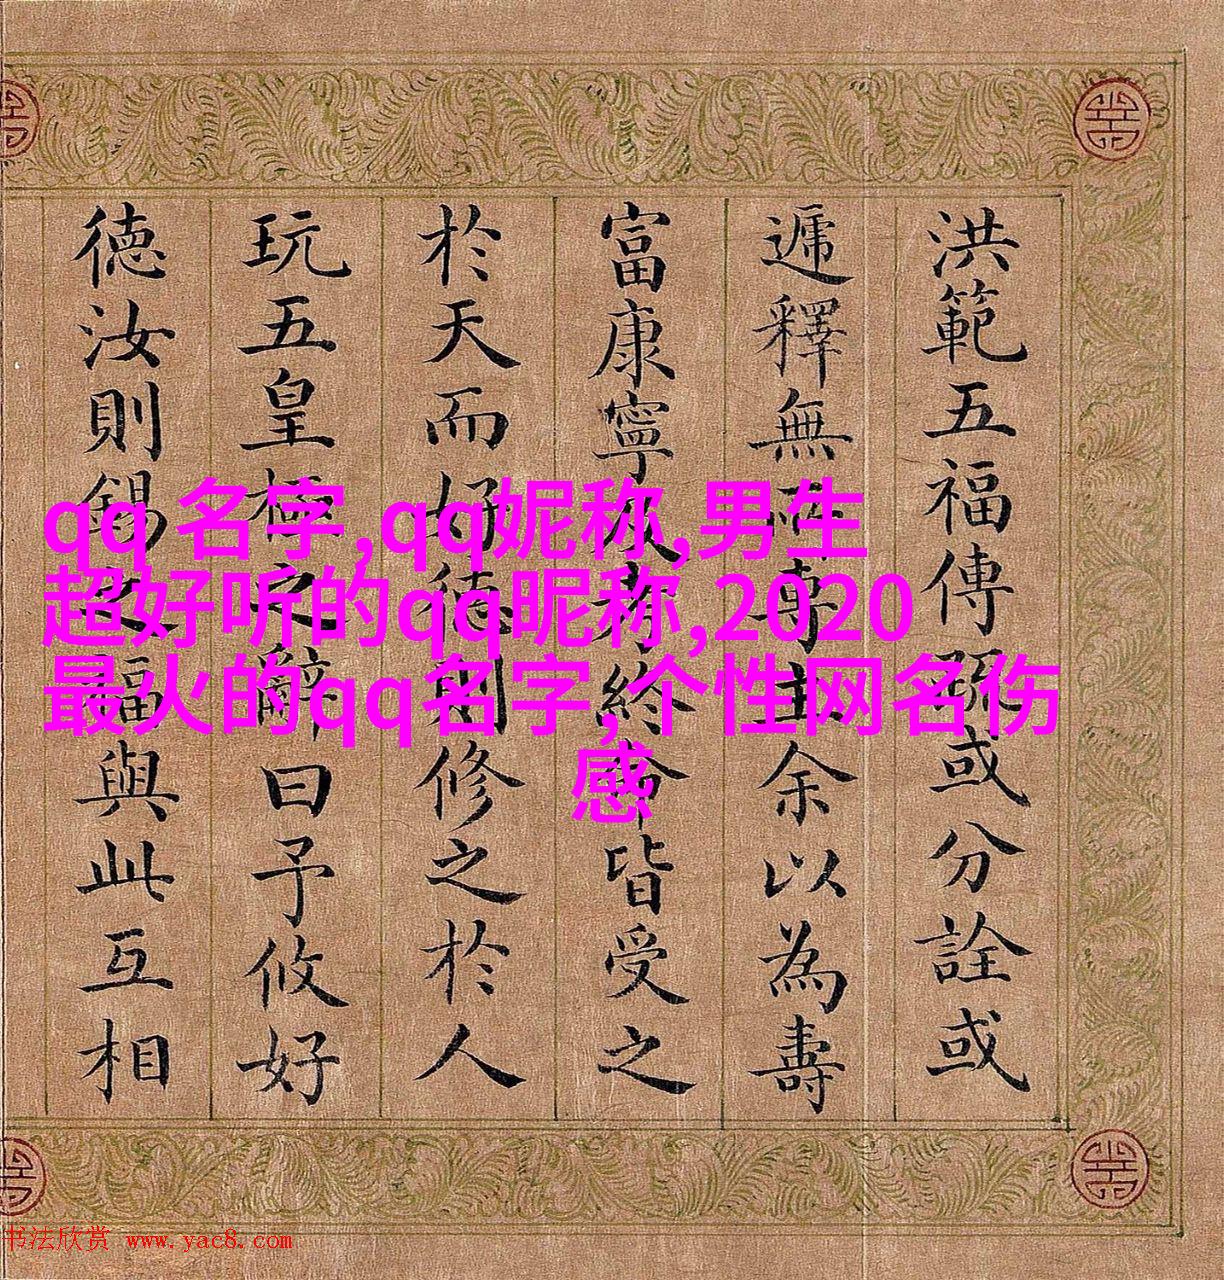 qq 名字,qq妮称,男生
超好听的qq昵称,2020
最火的qq名字,个性网名伤
感
洪範五福傳疏或分詮或
遞釋無所專主余以為壽
富康寧考終命皆受之
於天而好德則修之於人
玩五皇極之辭曰予攸好
德汝則錫之福與此互相
书法欣赏 www.yac8.com